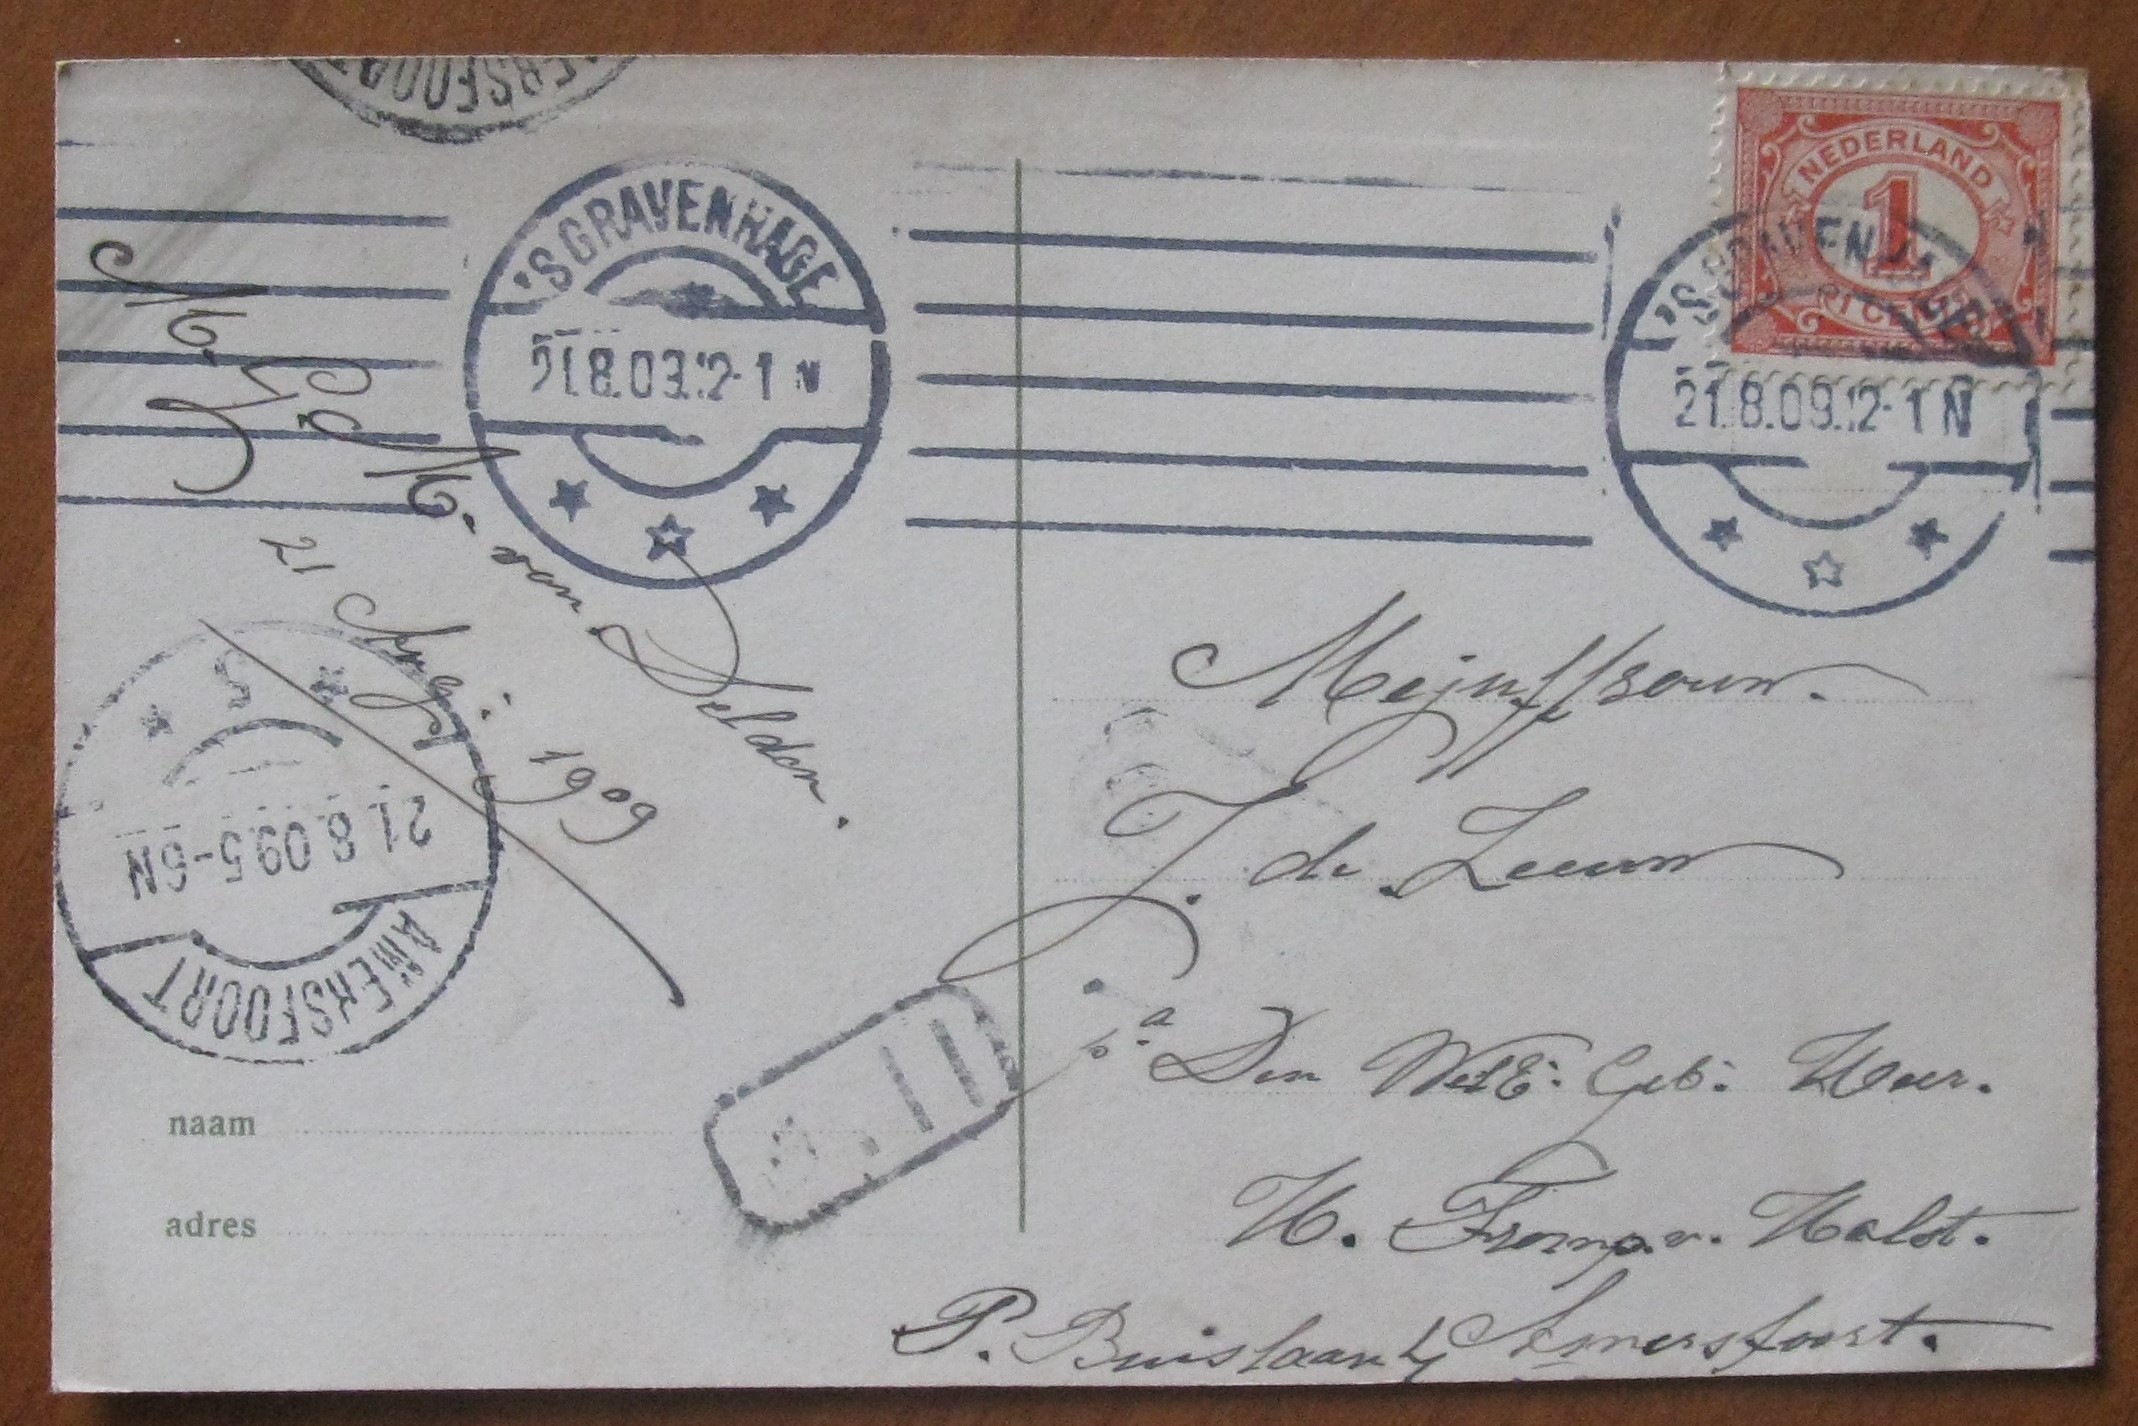 AMERSFOORT
'SGRAVENHAGE
21.8.09.12-1 N
NEDERLAND
1
CENT
'SGRAVENHAGE
21.8.09.12-1 N
M. G. M. van Delden.
21 Aug: 1909
5
21.8.09 5-6N
AMERSFOORT
Mejuffrouw.
J. de Leeuw
p.a Den WelE: Geb: Heer.
H. Tromp. v. Holst.
P. Buislaan Amersfoort.
naam
adres